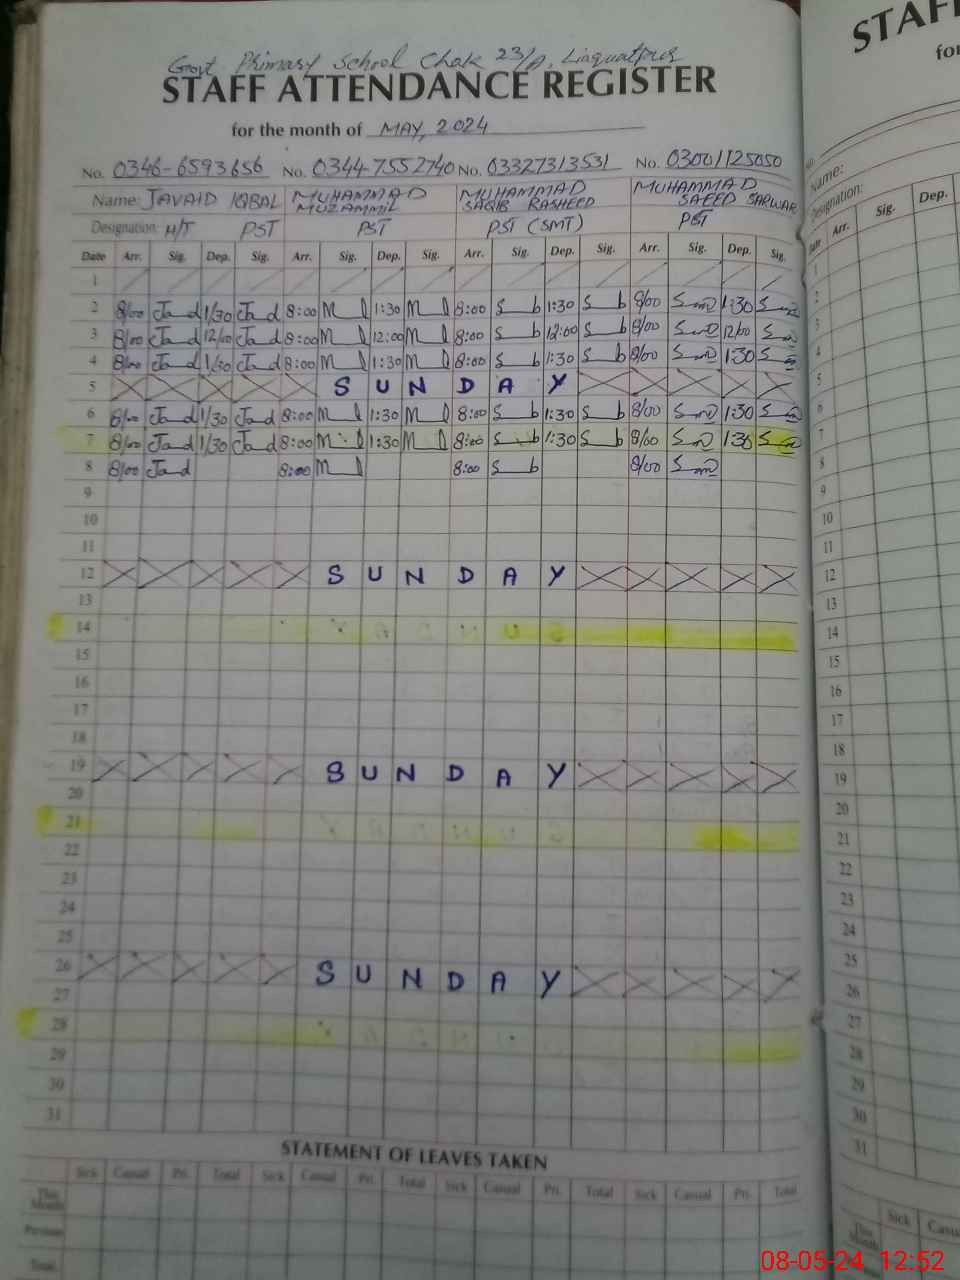 Govt Primary School Chak 23/A, Liaquatpur
STAFF ATTENDANCE REGISTER
for the month of MAY, 2024
No. 0346-6593656 No. 0344-7552740 No. 03327313531 No. 03001125050
Name: JAVAID IQBAL MUHAMMAD MUZAMMIL MUHAMMAD SAQIB RASHEED MUHAMMAD SAEED SARWAR
Designation: H/T PST PST PST (SMT) PST
Date Arr. Sig. Dep. Sig. Arr. Sig. Dep. Sig. Arr. Sig. Dep. Sig. Arr. Sig. Dep. Sig.
1
2 8/00 1/30 8:00 1:30 8:00 1:30 8/00 1:30
3 8/00 12/00 8:00 12:00 8:00 12:00 8/00 12/00
4 8/00 1/30 8:00 1:30 8:00 1:30 8/00 1:30
5 SUNDAY
6 8/00 1/30 8:00 1:30 8:00 1:30 8/00 1:30
7 8/00 1/30 8:00 1:30 8:00 1:30 8/00 1:30
8 8/00 8:00 8:00 8/00
9
10
11
12 SUNDAY
13
14
15
16
17
18
19 SUNDAY
20
21
22
23
24
25
26 SUNDAY
27
28
29
30
31
STATEMENT OF LEAVES TAKEN
Sick Casual Pri. Total Sick Casual Pri. Total Sick Casual Pri. Total Sick Casual Pri. Total
This Month
Previous
Total
STAFF
for
Name:
Designation:
Date Arr. Sig. Dep.
1
2
3
4
5
6
7
8
9
10
11
12
13
14
15
16
17
18
19
20
21
22
23
24
25
26
27
28
29
30
31
Sick
This Month
08-05-24 12:52